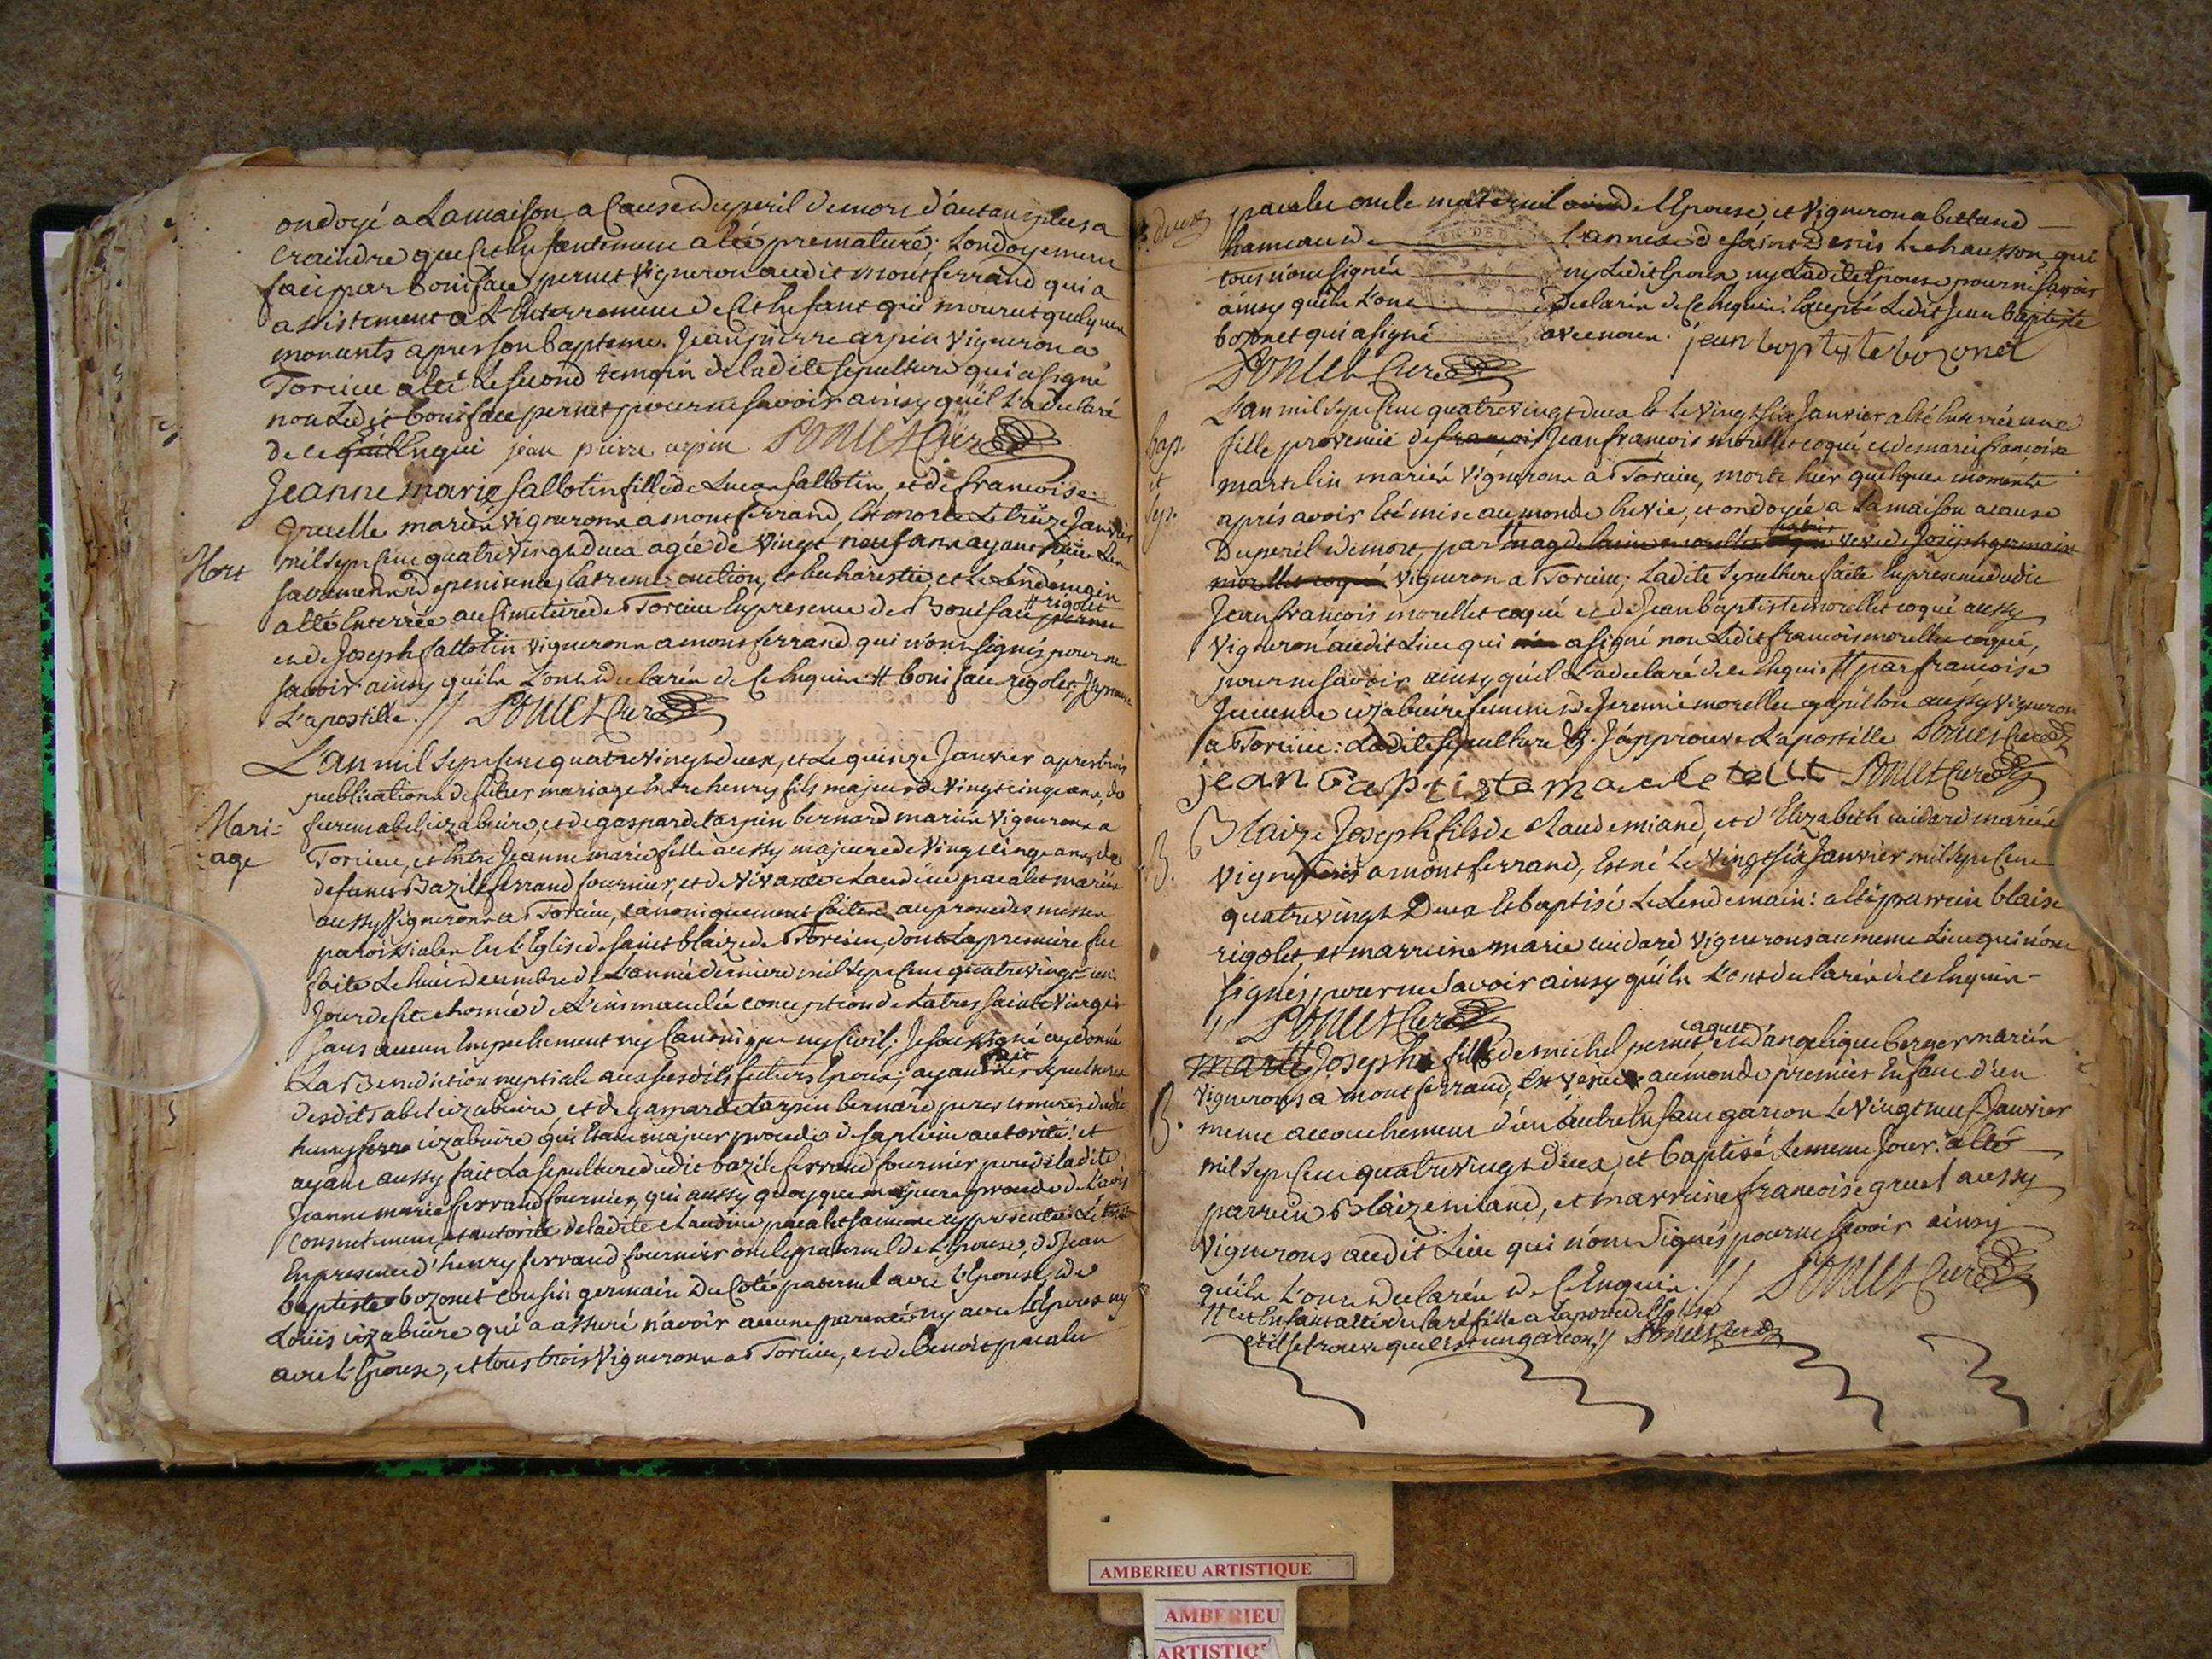 ondoyé a La maison a Cause du peril de mort d'autant plus a
craindre que cet Enfantement a été prematuré; Londoyement
fait par boniface pernet Vigneron audit montferrand qui a
assistement a L'Enterrement de cet Enfant qui mourut quelques
moments apres son bapteme. Jean pierre arpin Vigneron a
Torcieu a été Le second temoin de ladite sepulture qui a signé
non Ledit boniface pernet pour ne savoir ainsy qu'il L'a declaré
de ce Enquis jean pierre arpin PONCET Curé
Jeanne marie fallotin fille de Lucas fallotin, et de francoise
Gruelle mariés Vignerons a montferrand, Est morte Le treize Janvier
Mort
mil sept cent quatre vingt deux agée de Vingt neuf ans ayant Les
sacremens de penitence, Extreme onction, et Eucharistie, et Le Lendemain
# rigolet
a été Enterrée au Cimetiere de Torcieu En presence de Boniface pernet
et de Joseph fallotin vignerons a montferrand qui n'ont signés pour ne
savoir ainsy qu'ils L'ont declarés de ce Enquis # boniface rigolet J'aprouve
L'apostille. // PONCET Curé
L'an mil sept cent quatre vingt deux, et Le quinze Janvier apres trois
publications de futur mariage Entre henry fils majeur de Vingt cinq ans, de
Mari-
age
furent abel izabuire, et de gasparde tarpin bernard mariés Vignerons a
Torcieu, et Entre Jeanne marie fille aussy majeure de Vingt cinq ans, de
defunct Bazile ferrand fournier, et de Vivante Claudine pacalet mariés
aussy Vignerons a Torcieu, canoniquement faites au prone des messes
paroissiales En L'Eglise de saint blaize de Torcieu, dont La premiere fut
faite Le huit decembre de L'année derniere mil sept cent quatre vingt un
Jour de fete chomée de L'immaculée conception de La tres sainte Vierge
sans aucun Empechement ny Canonique ny Civil; Je soussigné ay donné
fait
La Benediction nuptiale aux susdits futurs Epoux; ayant Les sepultures
desdits abel izabuire et de gasparde tarpin bernard peres et meres dudit
henry izabuire qui Etant majeur procede de sa pleine autorité: et
ayant aussy fait La sepulture dudit bazile ferrand fournier pere de ladite
Jeanne marie ferrand fournier, qui aussy quoyque majeure procede de L'avis
consentement, et autorité de ladite Claudine pacalet sa mere cy presente. Le tout
En presence d'henry ferrand fournier oncle paternel de L'Epouse, de Jean
baptiste bozonet cousin germain du Coté paternel avec L'Epouse, de
Louis izabuire qui a assuré n'avoir aucune parenté ny avec L'Epoux ny
avec L'Epouse, et tous trois Vignerons a Torcieu, et de benoit pacalet
pacalet oncle maternel de L'Epouse, et Vigneron a bettand
hameau de L'annexe de saint denis Le chausson, qui
tous n'ont signés ny Ledit Epoux, ny Ladite Epouse pour ne savoir
ainsy qu'ils L'ont declarés de ce Enquis: Excepté Ledit Jean baptiste
bozonet qui a signé avec nous. jean baptyste bozonet
PONCET Curé
L'an mil sept cent quatre vingt deux Et Le Vingt six Janvier a été Enterrée une
Bap.
et
Sep.
fille provenue de francois Jean francois morellet coqué et de marie francoise
martelin mariés Vignerons a Torcieu, morte hier quelques moments
aprés avoir Eté mise au monde En vie, et ondoyée a La maison a cause
Du peril de mort, par magdelaine morellet veve de Joseph germain
morellet coqué Vigneron a Torcieu; Ladite Sepulture faite En presence dudit
Jean francois morellet coqué et de Jean baptiste morellet coqué aussy
Vigneron audit Lieu qui a signé non Ledit francois morellet coqué,
pour ne savoir ainsy qu'il L'a declaré de ce Enquis # par francoise
Jucende izabuire femme de Jeremie morellet papillon aussy Vigneron
a Torcieu: Ladite sepulture &. J'approuve L'apostille PONCET Curé
jean Baptiste PONCET Curé
B.
Blaize Joseph fils de Claude miand, et d'Elizabeth cuidard mariés
Vignerons a montferrand, Est né Le Vingt six Janvier mil sept cent
quatre vingt Deux Et baptisé Le Lendemain: a été parrein blaise
rigolet, et marreine marie cuidard Vignerons au meme Lieu qui n'ont
signés, pour ne savoir ainsy qu'ils L'ont declarés de ce Enquis-
// PONCET Curé
caquet
Joseph fils de michel pernet et d'angelique berger mariés
Vignerons a montferrand, Est venu au monde premier Enfant d'un
B.
meme accouchement d'un autre Enfant garcon Le Vingt neuf Janvier
mil sept cent quatre vingt Deux, et baptisé Le meme Jour: a été
parrein Blaize miand, et marreine francoise gruel aussy
Vignerons audit Lieu qui n'ont Signés pour ne savoir ainsy
qu'ils L'ont declarés de ce Enquis. // PONCET Curé
# cet Enfant a été declaré fille a La porte de L'Eglise
et il se trouve que c'est un garcon // PONCET Curé
AMBERIEU ARTISTIQUE
AMBERIEU
ARTISTIQ